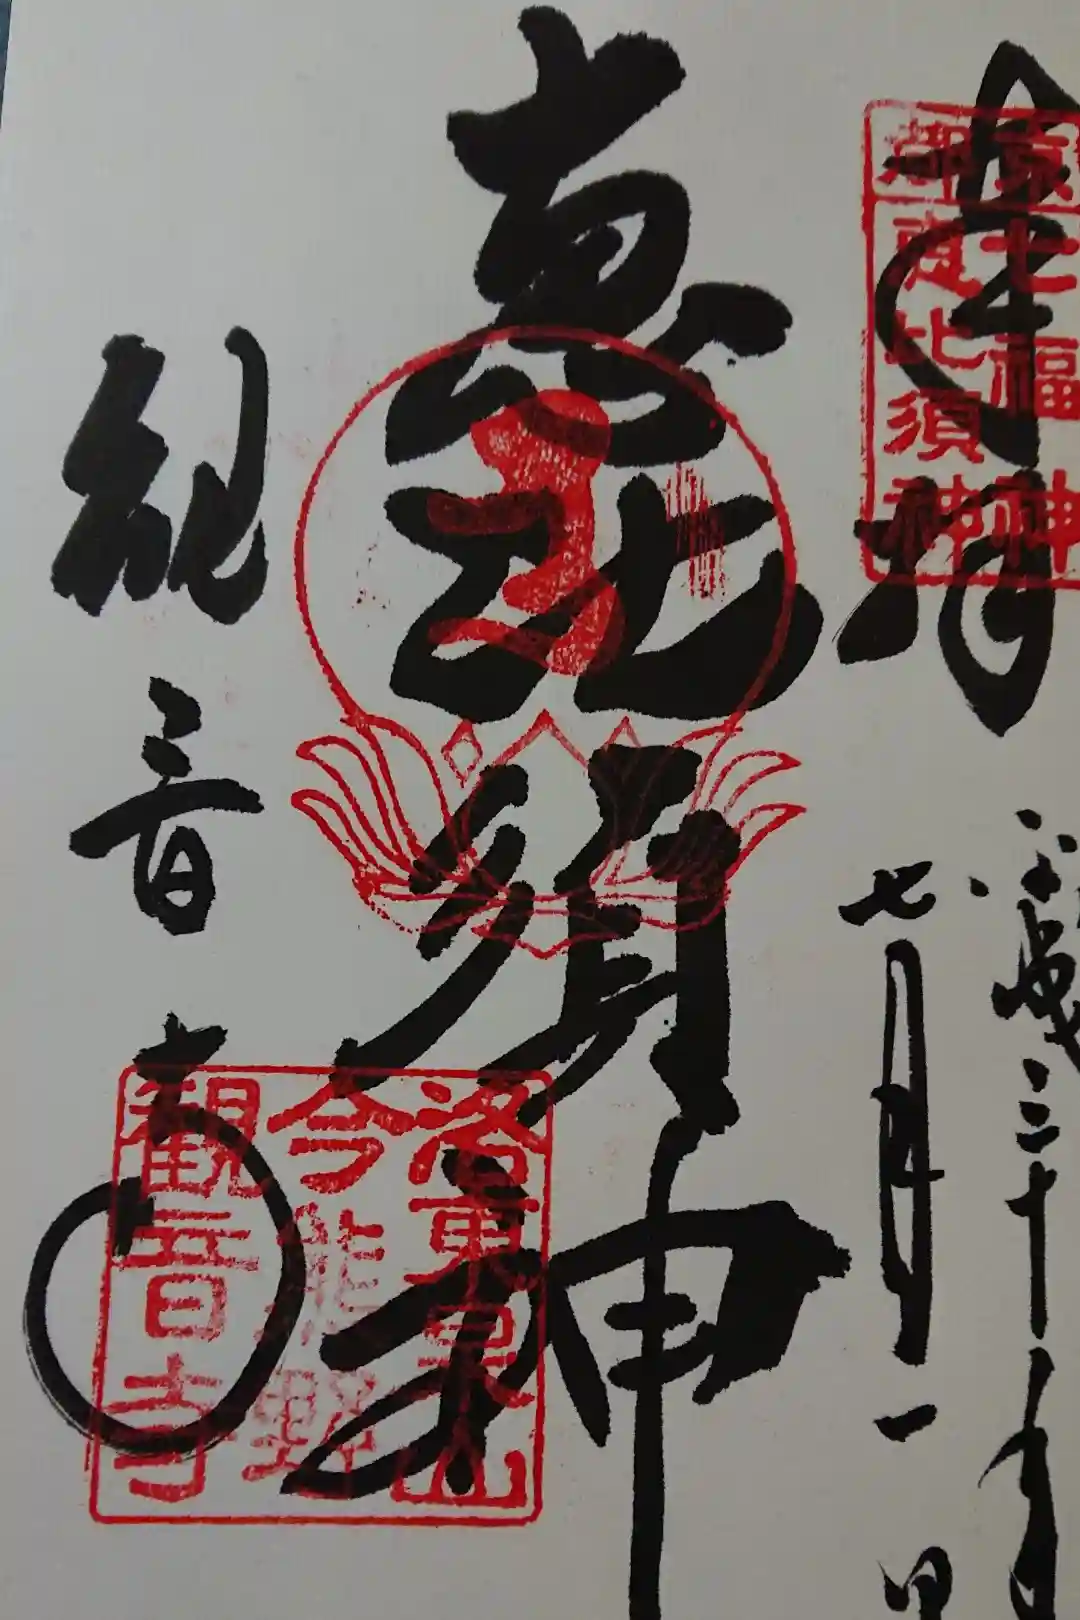 奉拝
平成三十年
七月一日
恵比須神
観音寺
京七福神
都恵比須神
洛東泉山
今熊野
観音寺